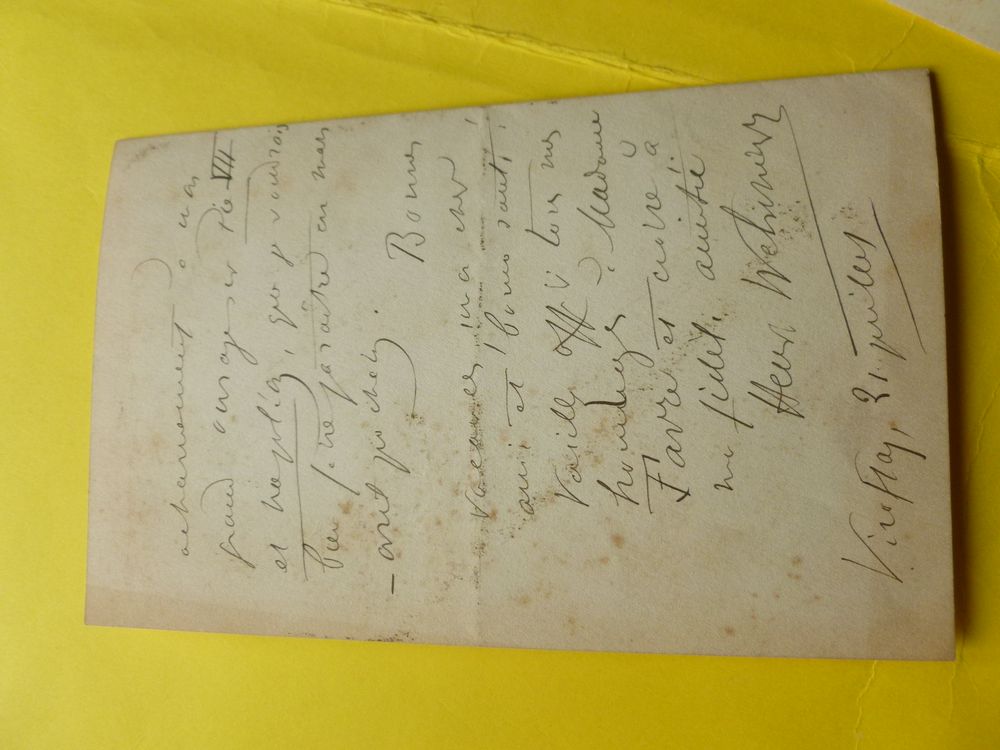 acharnement à mon
grand ouvrage sur Pie VII
et Napoléon, que je voudrois
bien faire paraître en mars
- avril prochain.
Bonnes
vacances, mon cher
ami et bonne santé !
Veuillez offrir tous mes
hommages à Madame
Favre et croire à
ma fidèle amitié.
Henri Welschinger
Viroflay, 31 juillet